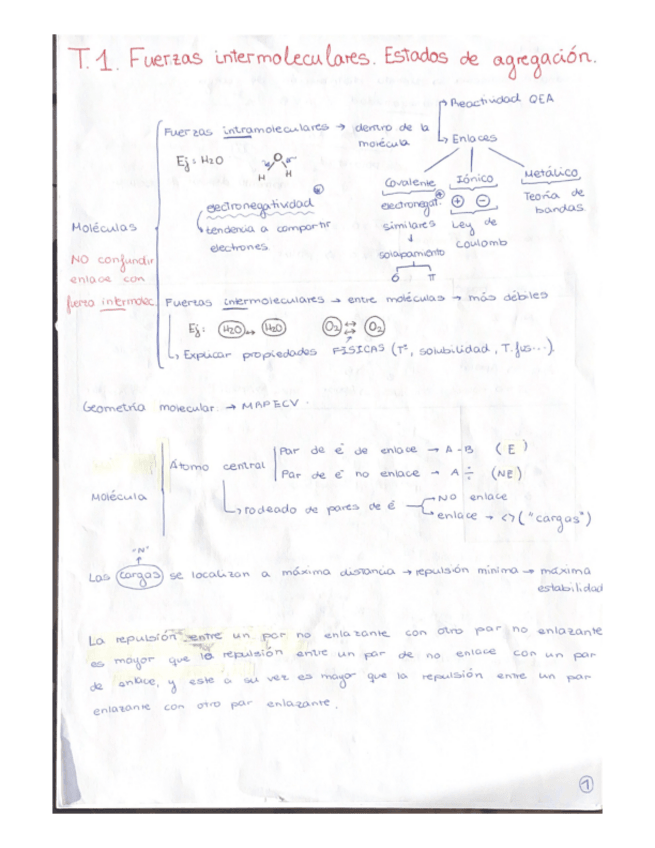 T.1. Fuerzas intermoleculares. Estados de agregación.
Reactividad QEA
Fuerzas intramoleculares → dentro de la molécula
Enlaces
Ej: H2O
O
H H
Covalente Iónico Metálico
electronegatividad
tendencia a compartir
electrones
electronegat.
similares
↓
solapamiento
σ π
+ -
Ley de
Coulomb
Teoría de
bandas
Moléculas
NO confundir
enlace con
fuerza intermolec.
Fuerzas intermoleculares → entre moléculas → más débiles
Ej: H2O ↔ H2O O2 ↔ O2
Explicar propiedades FÍSICAS (Tª, solubilidad, T.fus...)
Geometría molecular → MRPECV.
Molécula
Átomo central
Par de e⁻ de enlace → A-B (E)
Par de e⁻ no enlace → A÷ (NE)
rodeado de pares de e⁻
NO enlace
enlace → <> ("cargas")
"N"
↑
Las cargas se localizan a máxima distancia → repulsión mínima → máxima
estabilidad
La repulsión entre un par no enlazante con otro par no enlazante
es mayor que la repulsión entre un par de no enlace con un par
de enlace, y este a su vez es mayor que la repulsión entre un par
enlazante con otro par enlazante.
1